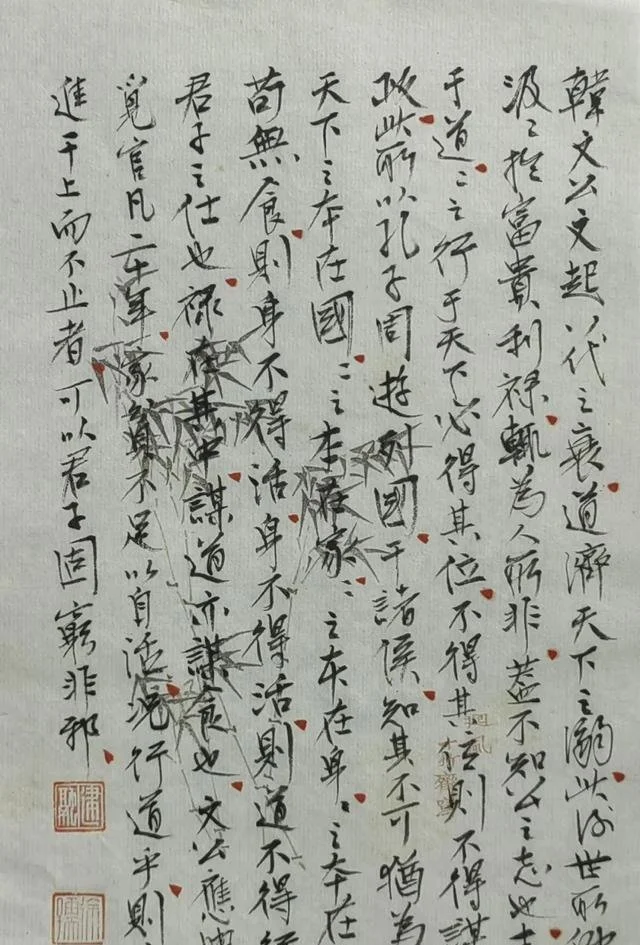 韓文公文起八代之衰道濟天下之溺此後世所
汲〻於富貴利祿輒為人所非蓋不知公之志也
于道〻之行于天下必得其位不得其位則不得謀
政此所以孔子周遊列國干諸侯知其不可猶為
天下之本在國〻之本在家〻之本在身〻之本在
苟無食則身不得活身不得活則道不得行
君子之仕也祿在其中謀道亦謀食也文公應
覓官凡二十年家貧不足以自活況行道乎則
進于上而不止者可以君子固窮非邪